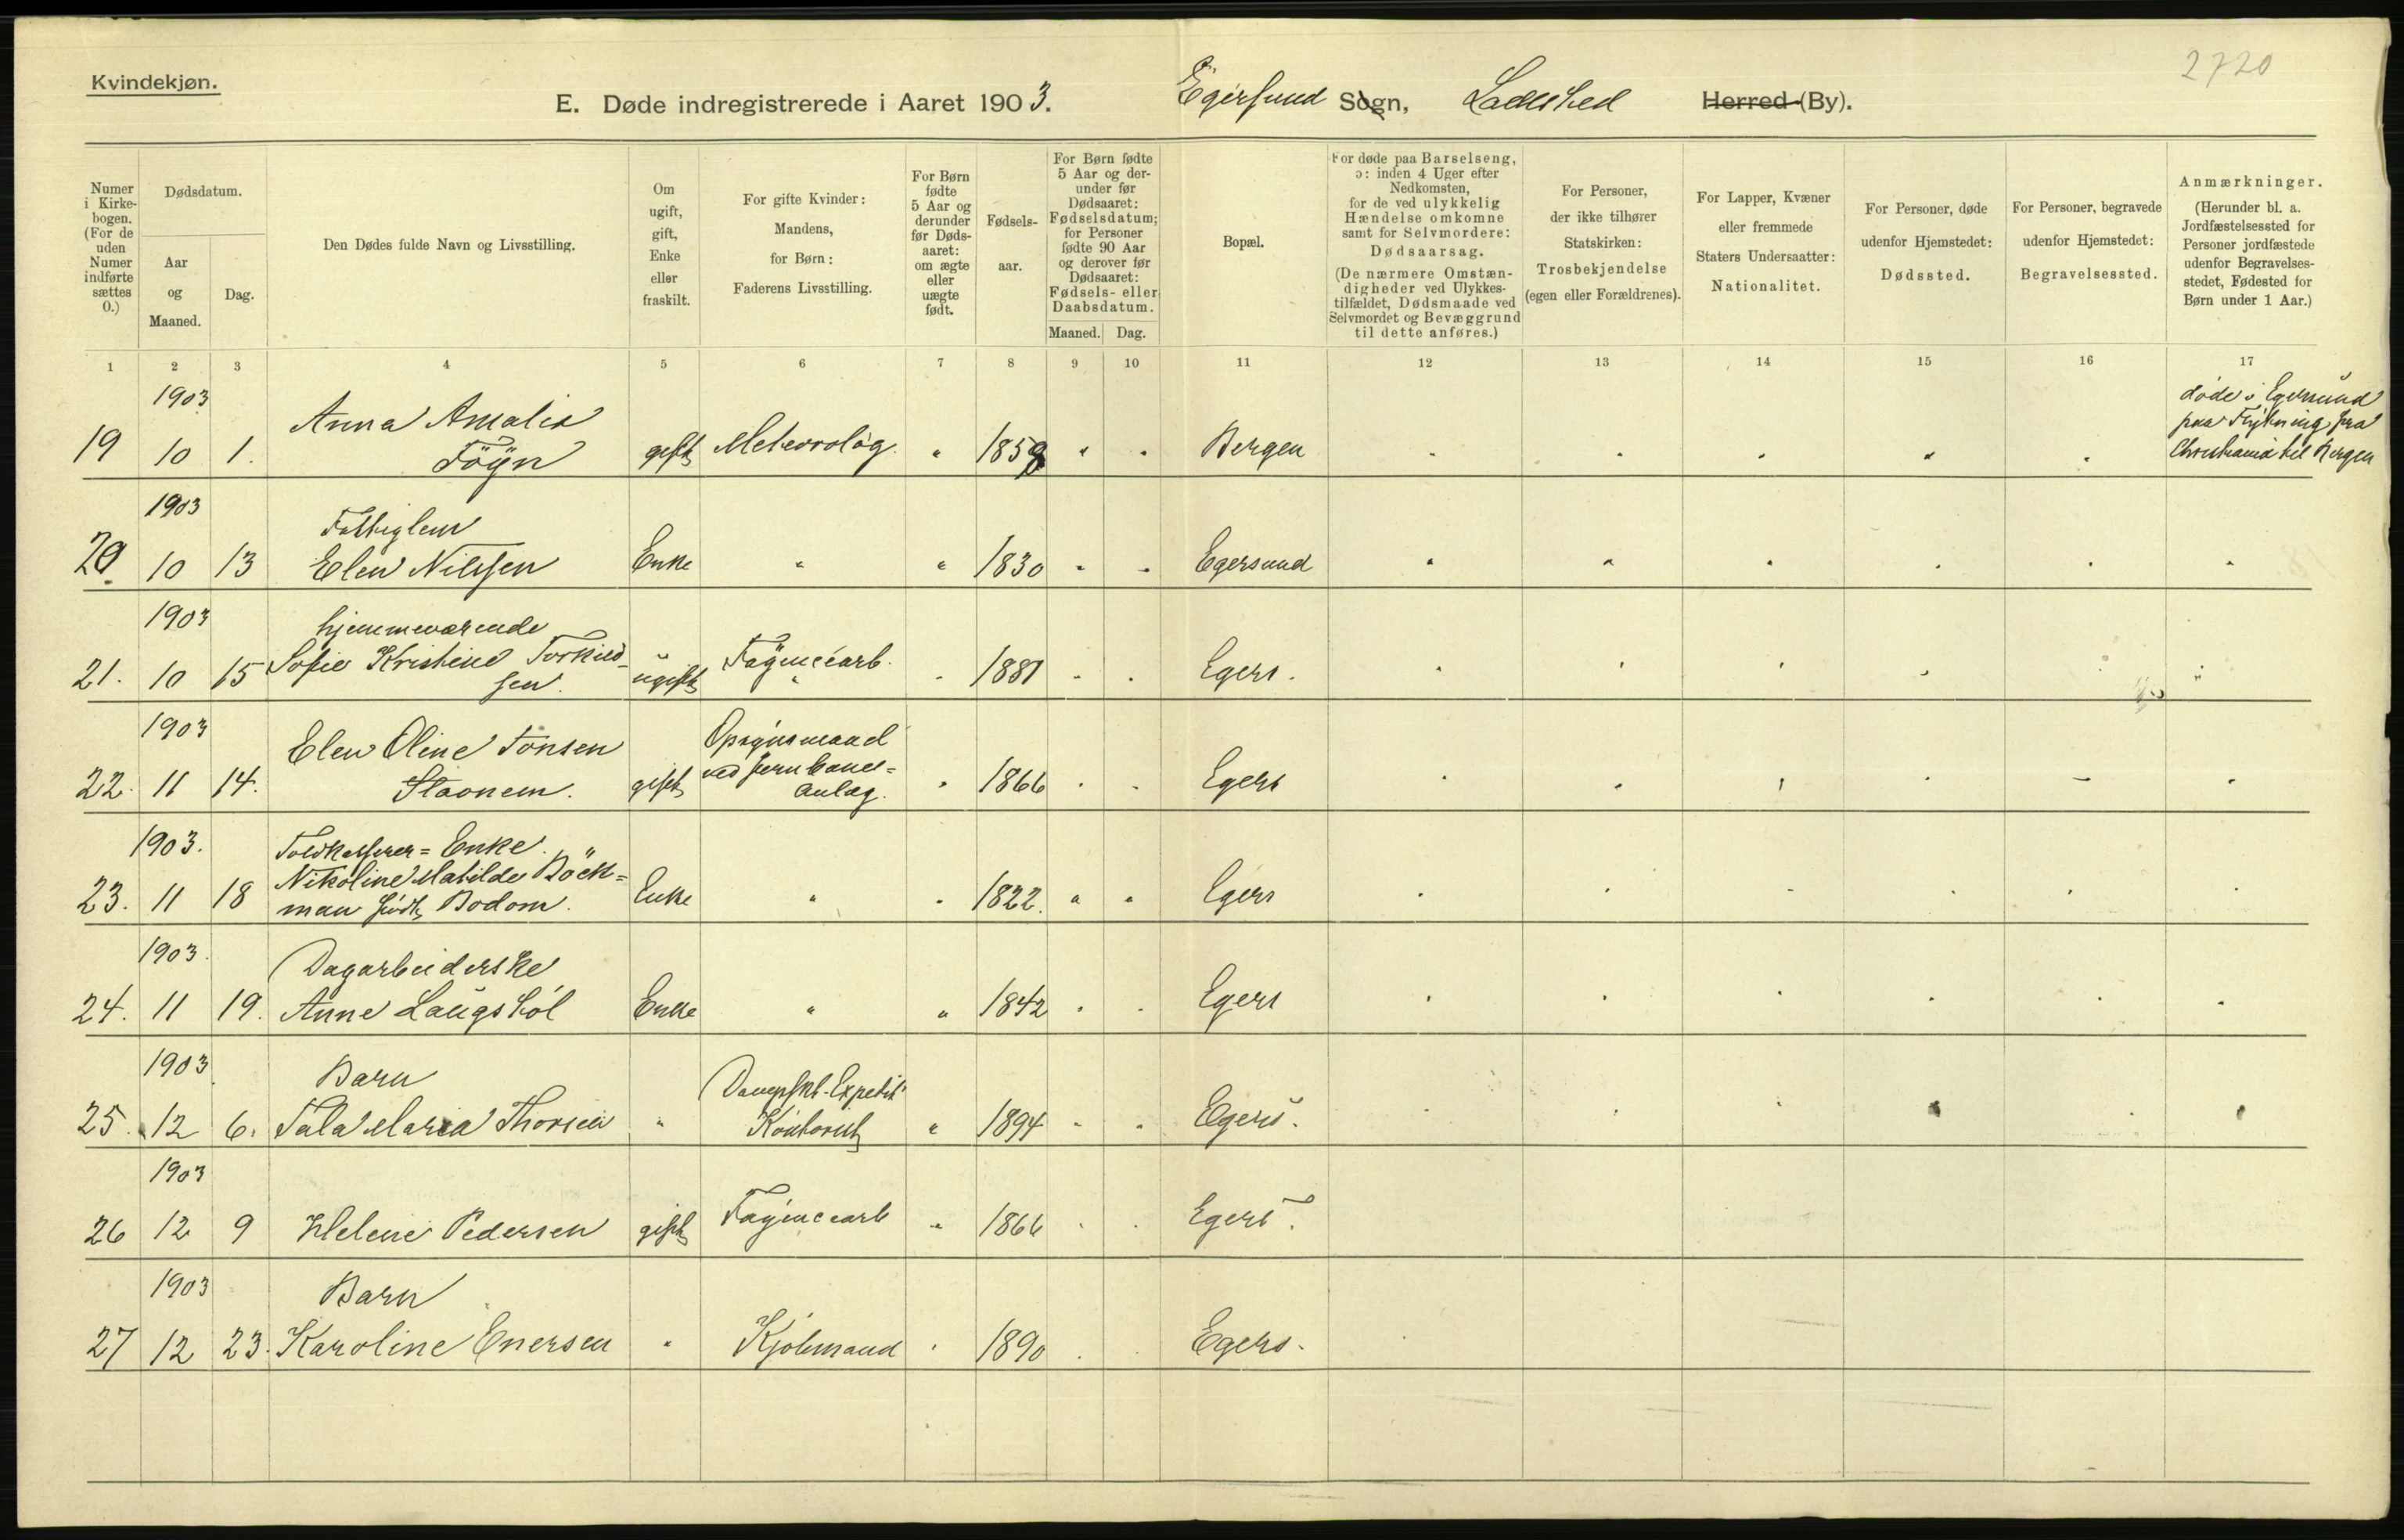 2720
Kvindekjøn.
E. Døde indregistrerede i Aaret 1903. Egersund Sogn, Ladested Herred (By).
Numer i Kirkebogen. (For de uden Numer indførte sættes 0.)
Dødsdatum.
Aar og Maaned.
Dag.
Den Dødes fulde Navn og Livsstilling.
Om ugift, gift, Enke eller fraskilt.
For gifte Kvinder: Mandens, for Børn: Faderens Livsstilling.
For Børn fødte 5 Aar og derunder før Dødsaaret: om ægte eller uægte født.
Fødselsaar.
For Børn fødte 5 Aar og derunder før Dødsaaret: Fødselsdatum; for Personer fødte 90 Aar og derover før Dødsaaret: Fødsels- eller Daabsdatum.
Maaned. Dag.
Bopæl.
For døde paa Barselseng, ɔ: inden 4 Uger efter Nedkomsten, for de ved ulykkelig Hændelse omkomne samt for Selvmordere: Dødsaarsag. (De nærmere Omstændigheder ved Ulykkestilfældet, Dødsmaade ved Selvmordet og Bevæggrund til dette anføres.)
For Personer, der ikke tilhører Statskirken: Trosbekjendelse (egen eller Forældrenes).
For Lapper, Kvæner eller fremmede Staters Undersaatter: Nationalitet.
For Personer, døde udenfor Hjemstedet: Dødssted.
For Personer, begravede udenfor Hjemstedet: Begravelsessted.
Anmærkninger. (Herunder bl. a. Jordfæstelsessted for Personer jordfæstede udenfor Begravelsesstedet, Fødested for Børn under 1 Aar.)
1 2 3 4 5 6 7 8 9 10 11 12 13 14 15 16 17
1903
19 10 1. Anna Amalia Föyn gift Meteorolog. " 1859 " " Bergen døde i Egersund paa Flytning fra Christiania til Bergen
1903
20. 10 13 Fattiglem Elen Nilssen Enke " " 1830 " " Egersund
1903
21. 10 15 hjemmeværende Sofie Kristine Torkildsen. ugift Fayencearb. 1881 Egers.
1903
22. 11 14. Elen Oline Tonsen Staonem. gift Opsynsmand ved Jernbaneanlæg. 1866 Egers
1903.
23. 11 18 Toldkasserer=Enke. Nikoline Matilde Böckman født Bodom. Enke " 1822. " " Egers
1903.
24. 11 19. Dagarbeiderske Anne Laugshol Enke " " 1842 Egers
1903
25. 12 6. Barn Tala Maria Thorsen " Dampskb.-Expedit. Kontorist " 1894 Egers.
1903
26 12 9 Helene Pedersen gift Fayencearb " 1866 Egers.
1903
27 12 23. Barn Karoline Enersen " Kjøbmand 1890 Egers.